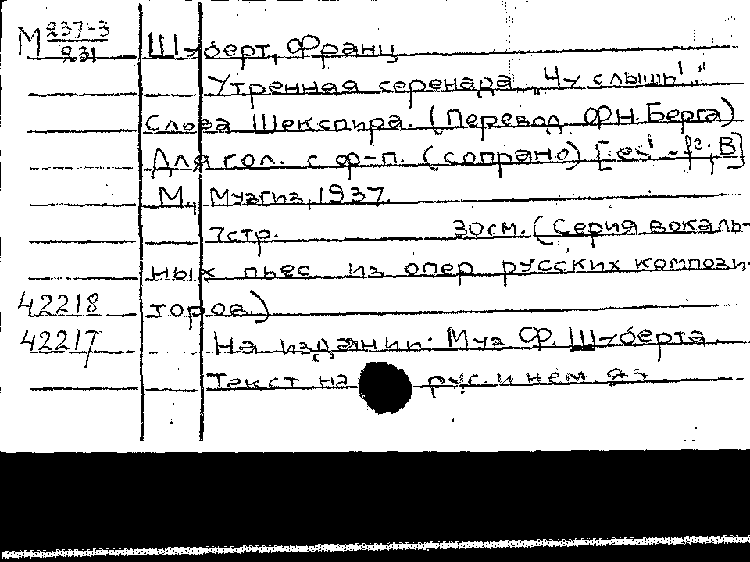 М 237-3/231 Шуберт, Франц
Утренная серенада „Чу слышь!.."
Слова Шекспира. (Перевод ФН. Берга)
Для гол. с ф-п. (сопрано) [es¹ - f²; B]
М., Музгиз, 1937.
7стр. 30см. (Серия вокаль-
ных пьес из опер русских компози-
42218 торов)
42217 На издании: Муз Ф. Шуберта
Текст на рус. и нем яз